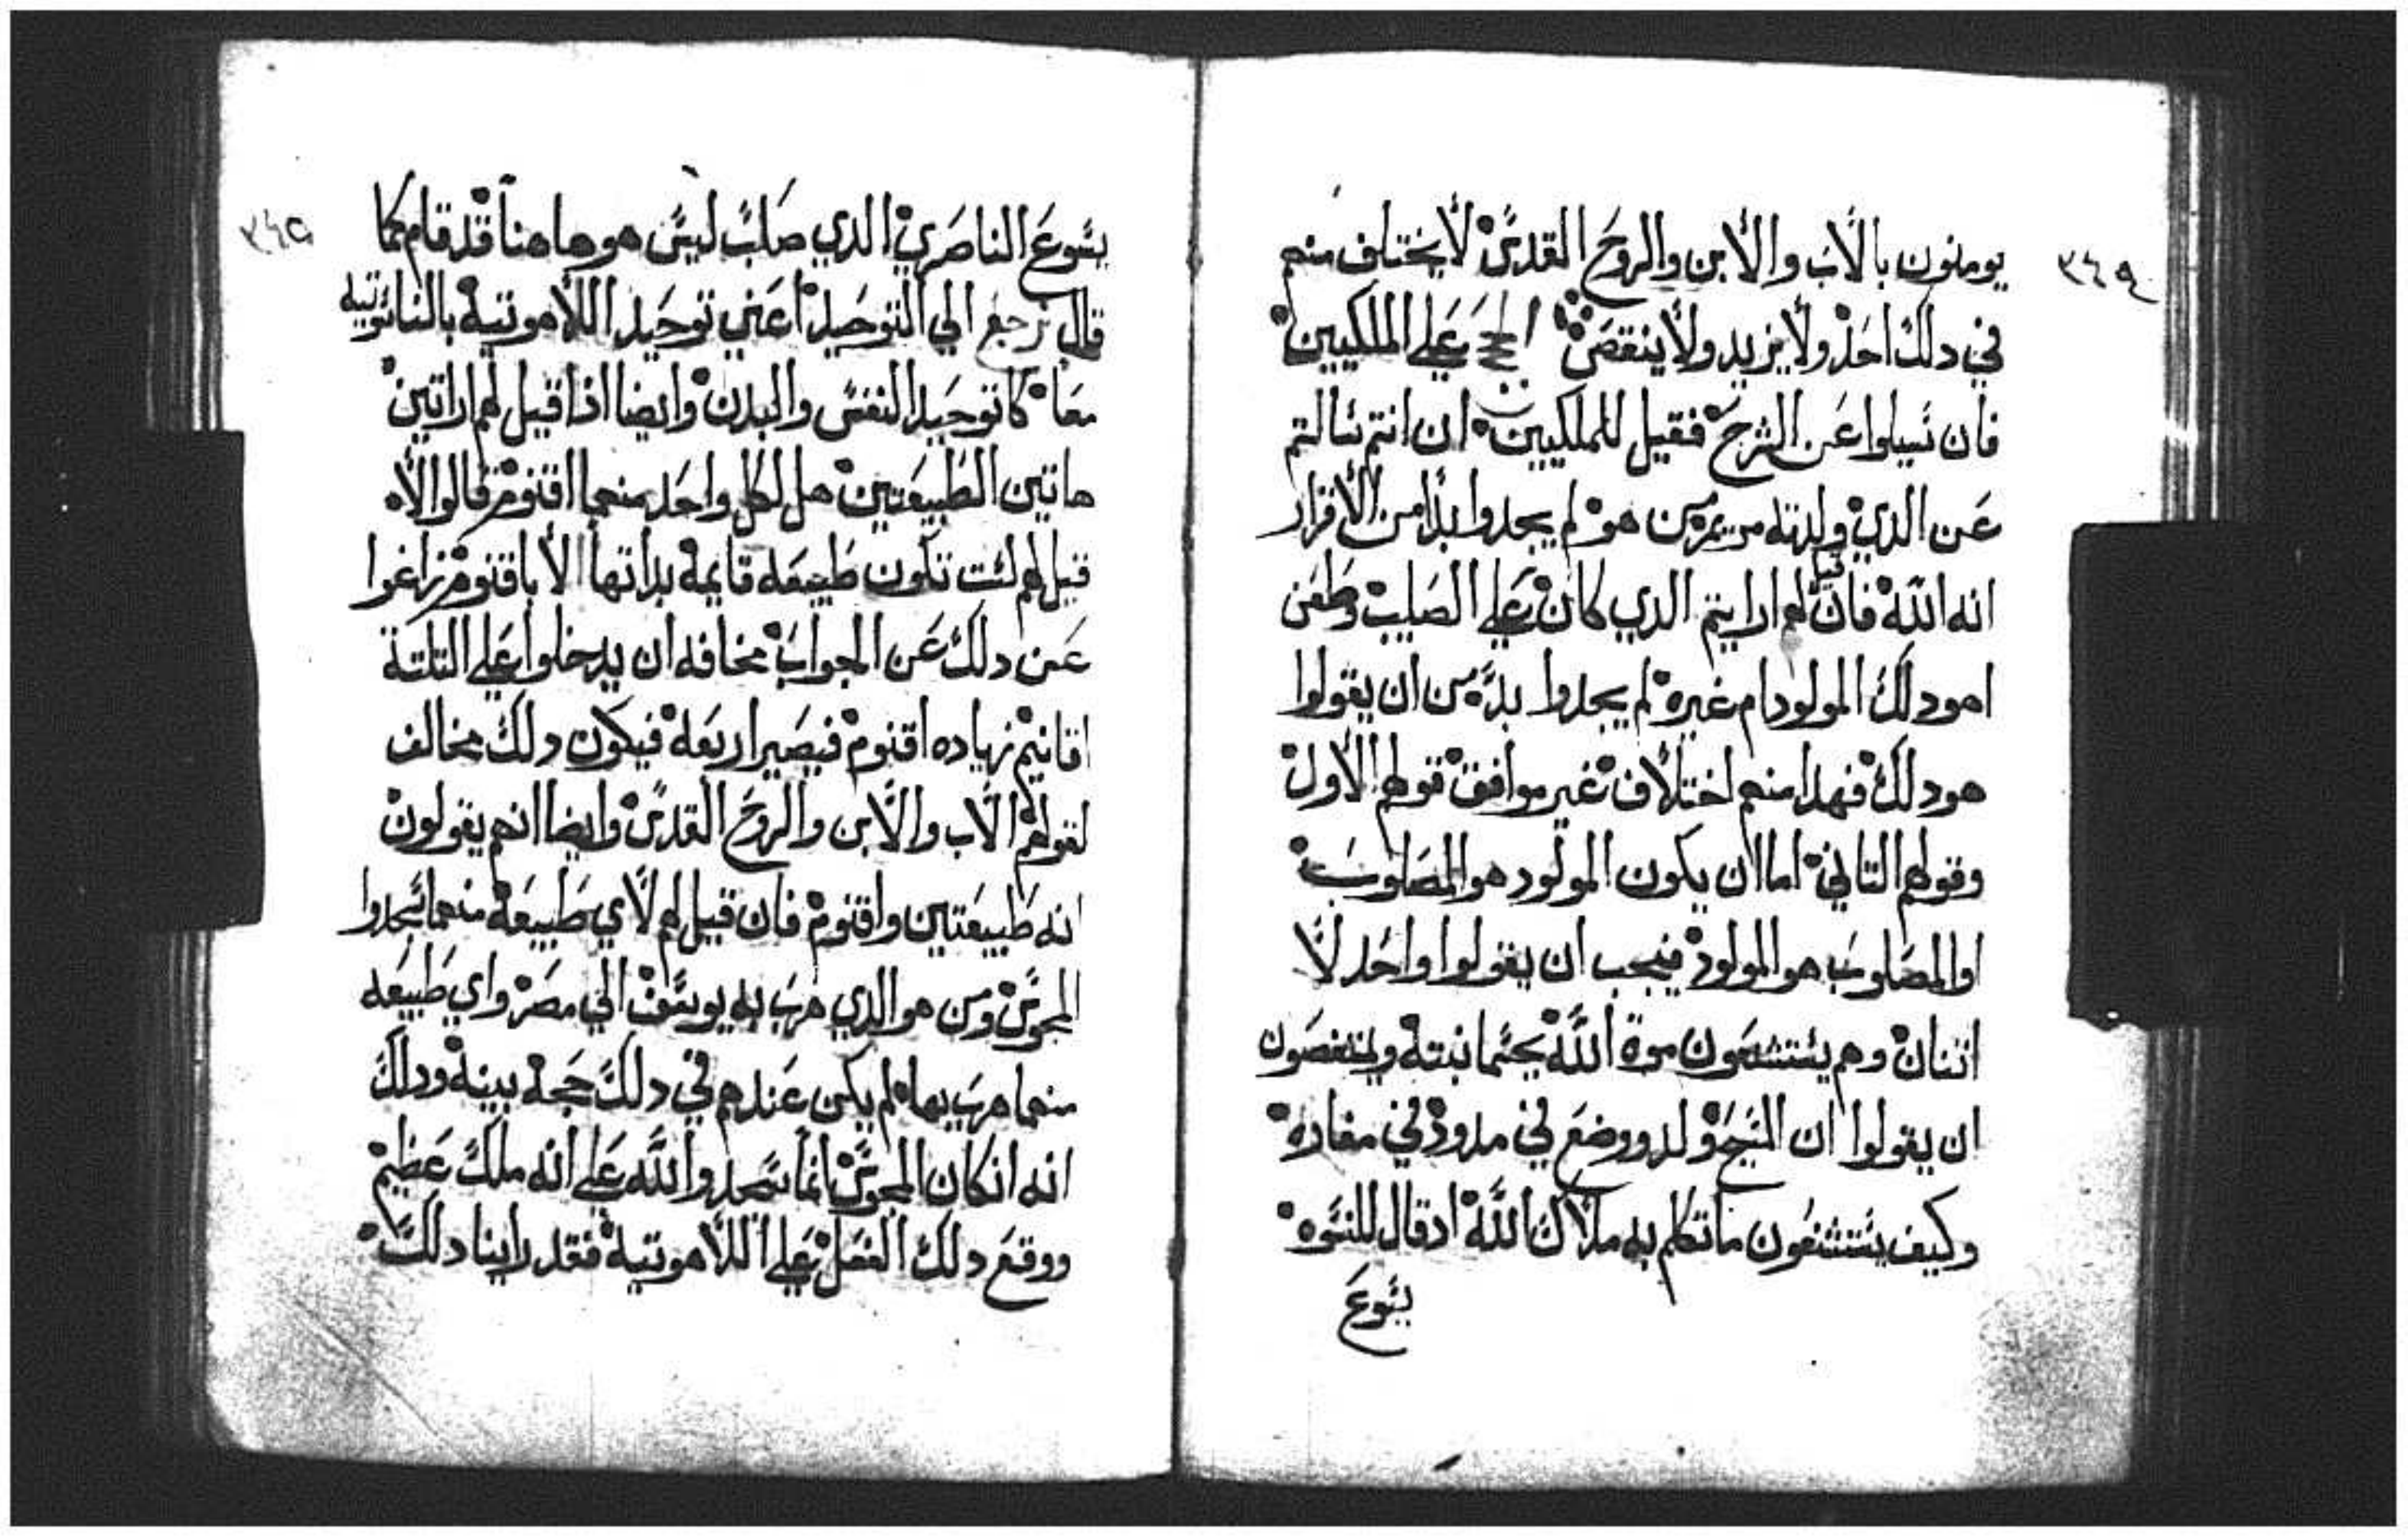 ٣٤٩
يومنون بالاب والابن والروح القدس لا يختلف منهم
في دلك احد ولا يزيد ولا ينقص على الملكيين
فان سيلوا عن الشرح فقيل للملكيين ان انتم سالتم
عن الدي ولدته مريم من هو لم يجدوا بدا من الاقرار
انه الله فان قيل لهم ارايتم الدي كان على الصليب وطعن
اهو دلك المولود ام غيره لم يجدوا بد من ان يقولوا
هو دلك فهدا منهم اختلاف غير موافق قولهم الاول
وقولهم التاني اما ان يكون المولود هو المصلوب
او المصلوب هو المولود فيجب ان يقولوا واحد لا
اتنان وهم يستشنعون موة الله بجسمانيته
ان يقولوا ان المسيح ولد ووضع في مدود في مغاره
وكيف يستشنعون ما تكلم به ملاك الله اد قال للنسوه
يسوع
يسوع الناصري الدي صلب ليس هو هاهنا قد قام كما
قال نرجع الي التوحيد اعني توحيد اللاهوتية بالناسوتيه
معا كاتوحيد النفس والبدن وايضا اذا قيل لهم اراتين
هاتين الطبيعتين هل لكل واحد منهما اقنوم قالوا لا
قيل لهم لست تكون طبيعه قايمة بداتها الا باقنوم زاغوا
عن دلك عن الجواب مخافه ان يدخلوا على التلتة
اقانيم زياده اقنوم فيصير اربعة فيكون دلك مخالف
لقولهم الاب والابن والروح القدس وايضا انهم يقولون
انه طبيعتين واقنوم فان قيل لهم لاي طبيعة منهما سجدوا
المجوس ومن هو الدي هرب به يوسف الي مصر واي طبيعه
منهما هرب بها لم يكن عندهم في دلك حجة بينة ودلك
انه انكان المجوس انما سجدوا لله على انه ملك عظيم
ووقع دلك الفصل على اللاهوتية فقد راينا دلك